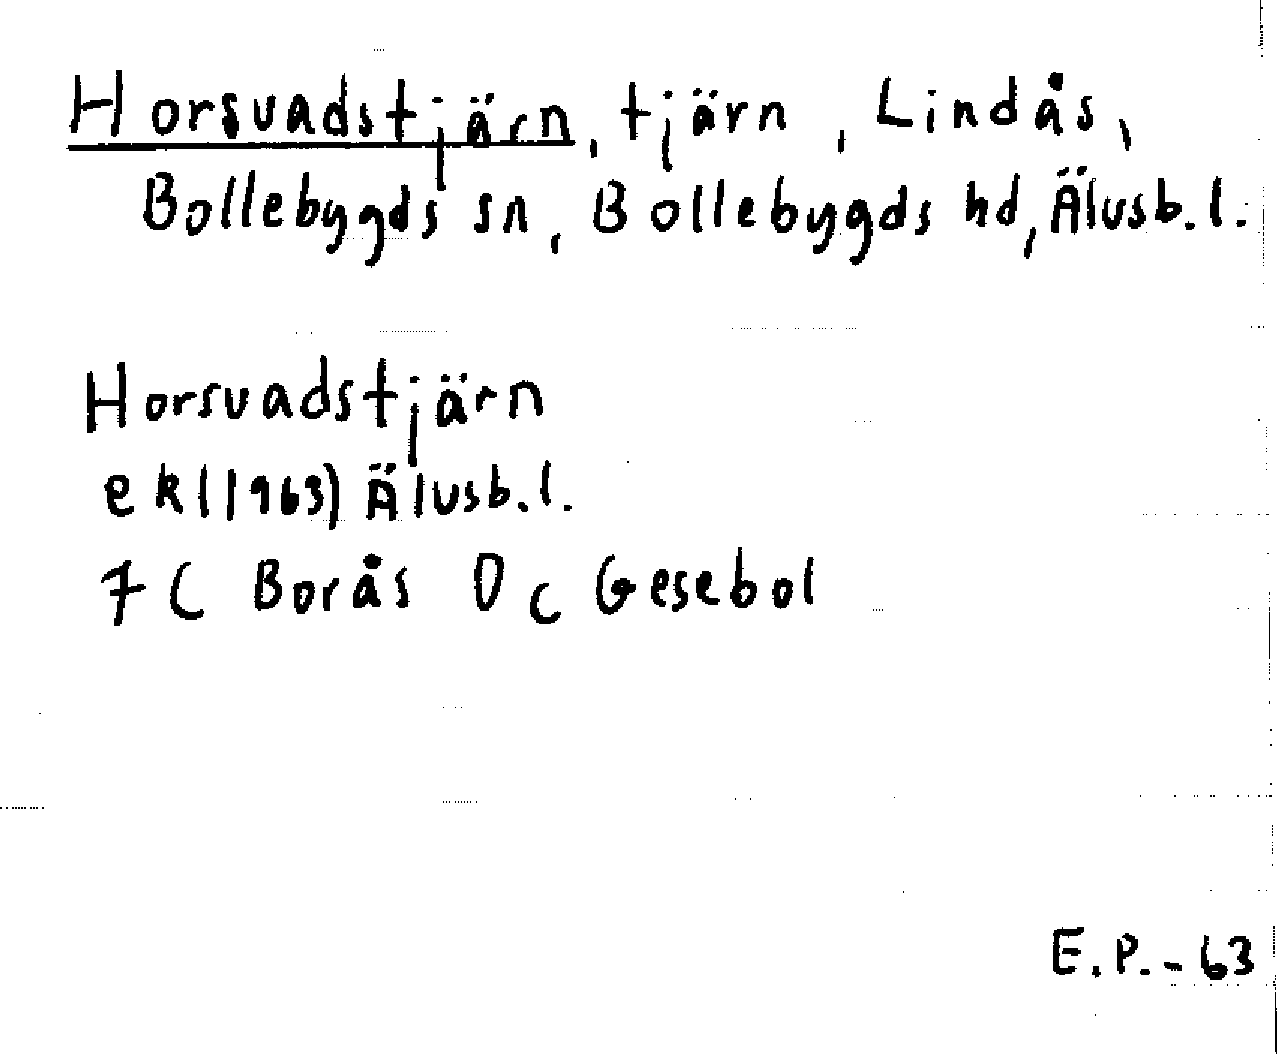 Horsvadstjärn, tjärn, Lindås,
Bollebygds sn, Bollebygds hd, Älvsb.l.
Horsvadstjärn
ek (1963) Älvsb.l.
7C Borås 0c Gesebol
E.P.-63